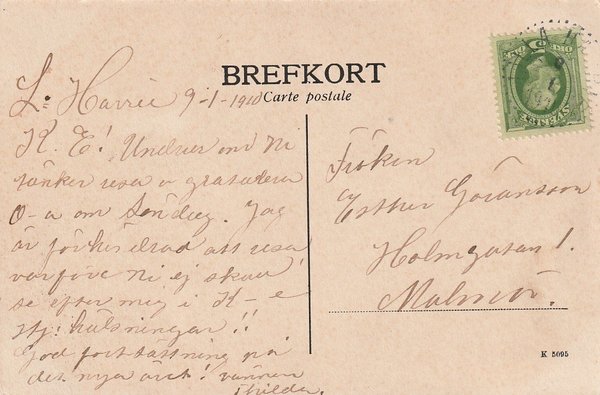 BREFKORT
Carte postale
L. Harrie 9-1-1910
K. E! Undrar om Ni
tänker resa o gratulera
O-a om Söndag. Jag
är förhindrad att resa
varföre Ni ej skall
se efter mig i K-e
Hj. hälsningar!!
God fortsättning på
det nya året! vännen
Thilda.
Fröken
Esther Göransson
Holmgatan 1.
Malmö.
SVERIGE
K 5095